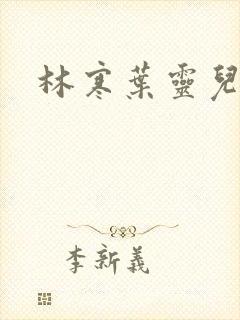 林寒葉靈兒
李新義